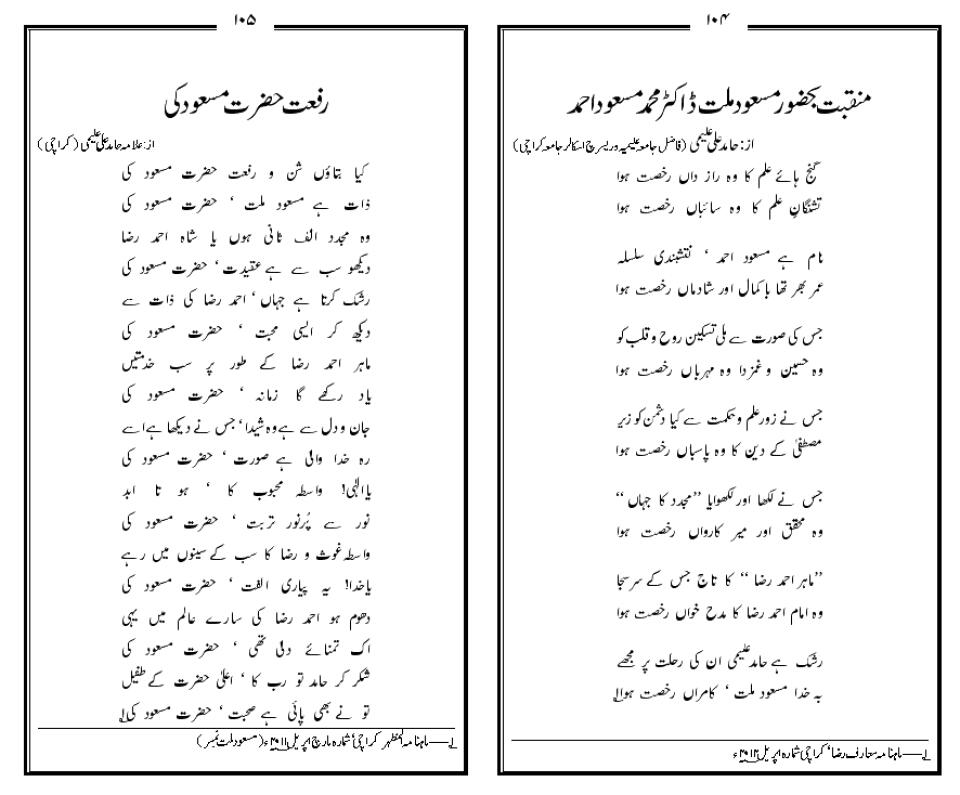 ۱۰۴
منقبت بحضور مسعود ملت ڈاکٹر محمد مسعود احمد
از: حامد علی علیمی (فاضل جامعہ علیمیہ و ریسرچ اسکالر جامعہ کراچی)
گنج ہائے علم کا وہ راز داں رخصت ہوا
تشنگانِ علم کا وہ سائباں رخصت ہوا
نام ہے مسعود احمد ‘ نقشبندی سلسلہ
عمر بھر تھا باکمال اور شادماں رخصت ہوا
جس کی صورت سے ملی تسکین روح و قلب کو
وہ حسین و غمزدا وہ مہرباں رخصت ہوا
جس نے زور علم و حکمت سے کیا دشمن کو زیر
مصطفیٰ کے دین کا وہ پاسباں رخصت ہوا
جس نے لکھا اور لکھوایا ’’مجدد کا جہاں ‘‘
وہ محقق اور میر کارواں رخصت ہوا
’’ماہر احمد رضا ‘‘ کا تاج جس کے سر سجا
وہ امام احمد رضا کا مدح خواں رخصت ہوا
رشک ہے حامد علیمی ان کی رحلت پر مجھے
بہ خدا مسعود ملت ‘ کامراں رخصت ہوا۱؎
۱؎——ماہنامہ معارف رضا‘ کراچی شمارہ اپریل ۲۰۱۲ء
۱۰۵
رفعت حضرت مسعود کی
از: علامہ حامد علی علیمی (کراچی)
کیا بتاؤں شن و رفعت حضرت مسعود کی
ذات ہے مسعود ملت ‘ حضرت مسعود کی
وہ مجدد الف ثانی ہوں یا شاہ احمد رضا
دیکھو سب سے ہے عقیدت ‘ حضرت مسعود کی
رشک کرتا ہے جہاں ‘ احمد رضا کی ذات سے
دیکھ کر ایسی محبت ‘ حضرت مسعود کی
ماہر احمد رضا کے طور پر سب خدمتیں
یاد رکھے گا زمانہ ‘ حضرت مسعود کی
جان و دل سے ہے وہ شیدا ‘ جس نے دیکھا ہے اسے
رہ خدا والی ہے صورت ‘ حضرت مسعود کی
یا الٰہی! واسطہ محبوب کا ‘ ہو تا ابد
نور سے پُرنور تربت ‘ حضرت مسعود کی
واسطہ غوث و رضا کا سب کے سینوں میں رہے
یا خدا! یہ پیاری الفت ‘ حضرت مسعود کی
دھوم ہو احمد رضا کی سارے عالم میں یہی
اک تمنائے دلی تھی ‘ حضرت مسعود کی
شکر کر حامد تو رب کا ‘ اعلیٰ حضرت کے طفیل
تو نے بھی پائی ہے صحبت ‘ حضرت مسعود کی۱؎
۱؎——ماہنامہ المظہر کراچی‘ شمارہ مارچ اپریل ۲۰۱۱ء (مسعود ملت نمبر)